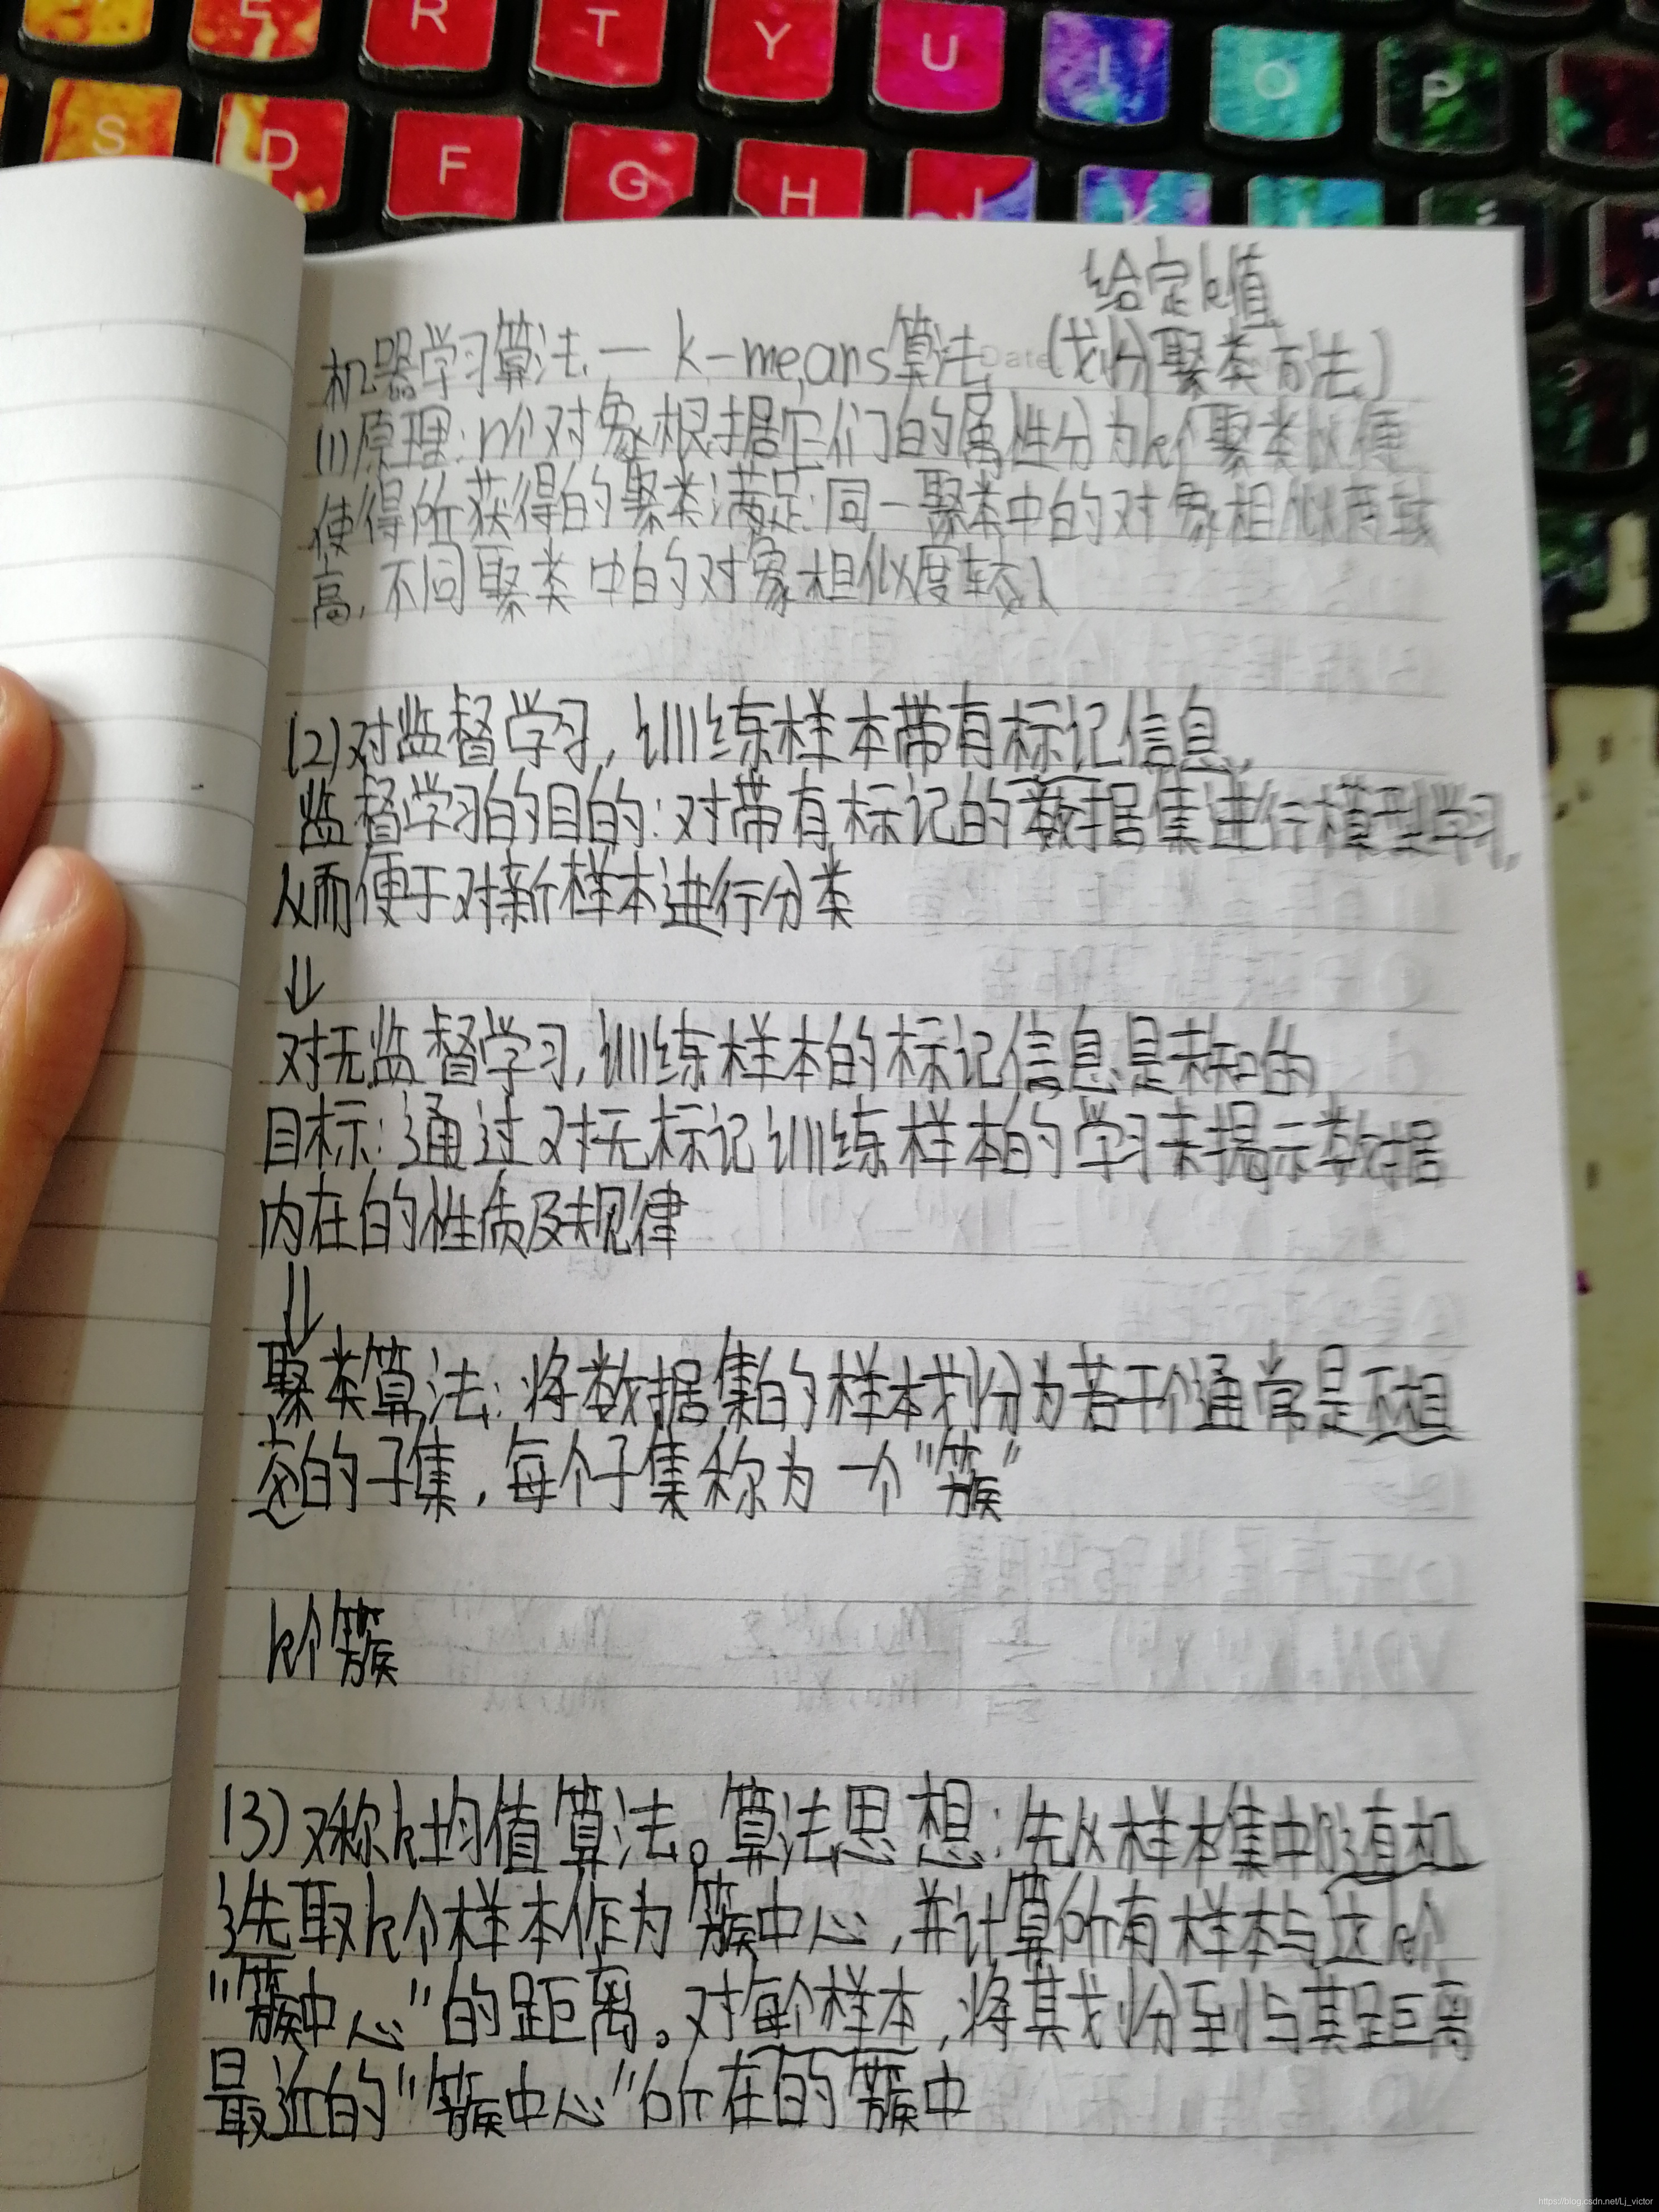 R T Y U I O P
S D F G H J K L
给定k值
机器学习算法 — k-means算法 (划分聚类方法)
Date
(1)原理:n个对象根据它们的属性分为k个聚类以便
使得所获得的聚类满足:同一聚类中的对象相似度较
高,不同聚类中的对象相似度较小
(2)对监督学习,训练样本带有标记信息,
监督学习的目的:对带有标记的数据集进行模型学习,
从而便于对新样本进行分类
⇓
对无监督学习,训练样本的标记信息是未知的
目标:通过对无标记训练样本的学习来揭示数据
内在的性质及规律
⇓
聚类算法:将数据集的样本划分为若干个通常是不相
交的子集,每个子集称为一个"簇"
k个簇
(3)又称k均值算法。算法思想:先从样本集中随机
选取k个样本作为簇中心,并计算所有样本与这k个
"簇中心"的距离。对每个样本,将其划分到与其距离
最近的"簇中心"所在的簇中
https://blog.csdn.net/Lj_victor